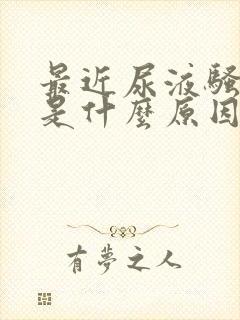 最近尿液騷
是什麼原因
有夢之人